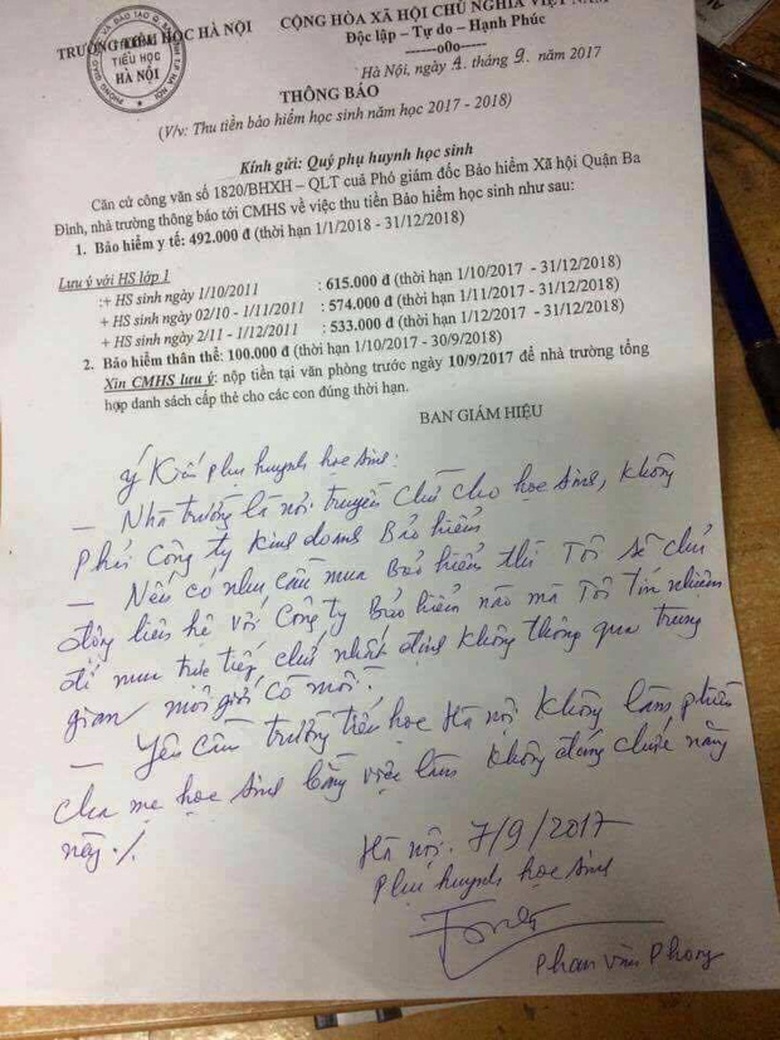 TRƯỜNG TIỂU HỌC HÀ NỘI
CỘNG HÒA XÃ HỘI CHỦ NGHĨA VIỆT NAM
Độc lập – Tự do – Hạnh Phúc
------o0o------
TIỂU HỌC
HÀ NỘI
Hà Nội, ngày 4 tháng 9 năm 2017
THÔNG BÁO
(V/v: Thu tiền bảo hiểm học sinh năm học 2017 - 2018)
Kính gửi: Quý phụ huynh học sinh
Căn cứ công văn số 1820/BHXH – QLT cuả Phó giám đốc Bảo hiểm Xã hội Quận Ba
Đình, nhà trường thông báo tới CMHS về việc thu tiền Bảo hiểm học sinh như sau:
1. Bảo hiểm y tế: 492.000 đ (thời hạn 1/1/2018 - 31/12/2018)
Lưu ý với HS lớp 1
:+ HS sinh ngày 1/10/2011 : 615.000 đ (thời hạn 1/10/2017 - 31/12/2018)
+ HS sinh ngày 02/10 - 1/11/2011 : 574.000 đ (thời hạn 1/11/2017 - 31/12/2018)
+ HS sinh ngày 2/11 - 1/12/2011 : 533.000 đ (thời hạn 1/12/2017 - 31/12/2018)
2. Bảo hiểm thân thể: 100.000 đ (thời hạn 1/10/2017 - 30/9/2018)
Xin CMHS lưu ý: nộp tiền tại văn phòng trước ngày 10/9/2017 để nhà trường tổng
hợp danh sách cấp thẻ cho các con đúng thời hạn.
BAN GIÁM HIỆU
ý Kiến phụ huynh học sinh:
– Nhà trường là nơi truyền chữ cho học sinh, không
phải Công ty kinh doanh Bảo hiểm
– Nếu có nhu cầu mua Bảo hiểm thì Tôi sẽ chủ
động liên hệ với Công ty Bảo hiểm nào mà Tôi tín nhiệm
để mua trực tiếp chứ nhất định không thông qua trung
gian môi giới cò mồi.
– Yêu cầu trường tiểu học Hà nội không làm phiền
cha mẹ học sinh bằng việc làm không đúng chức năng
này ./.
Hà nội. 7/9/2017
Phụ huynh học sinh
Phan văn Phong